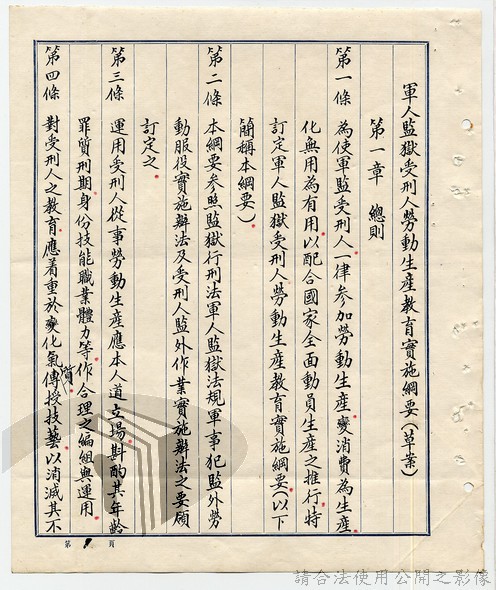 軍人監獄受刑人勞動生產教育實施綱要(草案)
第一章 總則
第一條 為使軍監受刑人一律參加勞動生產變消費為生產
化無用為有用以配合國家全面動員生產之推行特
訂定軍人監獄受刑人勞動生產教育實施綱要(以下
簡稱本綱要)
第二條 本綱要參照監獄行刑法軍人監獄法規軍事犯監外勞
動服役實施辦法及受刑人監外作業實施辦法之要領
訂定之
第三條 運用受刑人從事勞動生產應本人道立場斟酌其年齡
罪質刑期身份技能職業體力等作合理之編組與運用
第四條 對受刑人之教育應着重於變化氣質傳授技藝以消滅其不
第1頁
請合法使用公開之影像